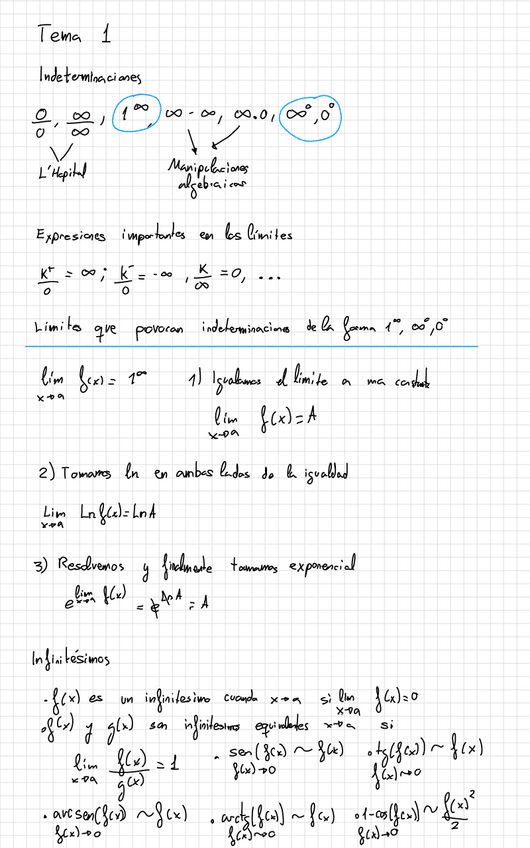 Tema 1
Indeterminaciones
0/0, ∞/∞, 1^∞, ∞ - ∞, ∞.0, ∞^0, 0^0
L'Hopital
Manipulaciones
algebraicas
Expresiones importantes en los limites
k⁺/0 = ∞; k⁻/0 = -∞, K/∞ = 0, ...
Limites que povocan indeterminaciones de la forma 1^∞, ∞^0, 0^0
lim x→a f(x) = 1^∞ 1) Igualamos el limite a una constante
lim x→a f(x) = A
2) Tomamos ln en ambos lados de la igualdad
Lim x→a Ln f(x) = Ln A
3) Resolvemos y finalmente tomamos exponencial
e^(lim x→a f(x)) = e^(Ln A) = A
Infinitésimos
· f(x) es un infinitesimo cuando x→a si lim x→a f(x) = 0
· f(x) y g(x) son infinitesimos equivalentes x→a si
lim x→a f(x)/g(x) = 1 · sen(f(x) ~ f(x) f(x)→0 · tg(f(x)) ~ f(x) f(x)→0
· arcsen(f(x)) ~ f(x) f(x)→0 · arctg(f(x)) ~ f(x) f(x)→0 · 1-cos(f(x)) ~ f(x)²/2 f(x)→0